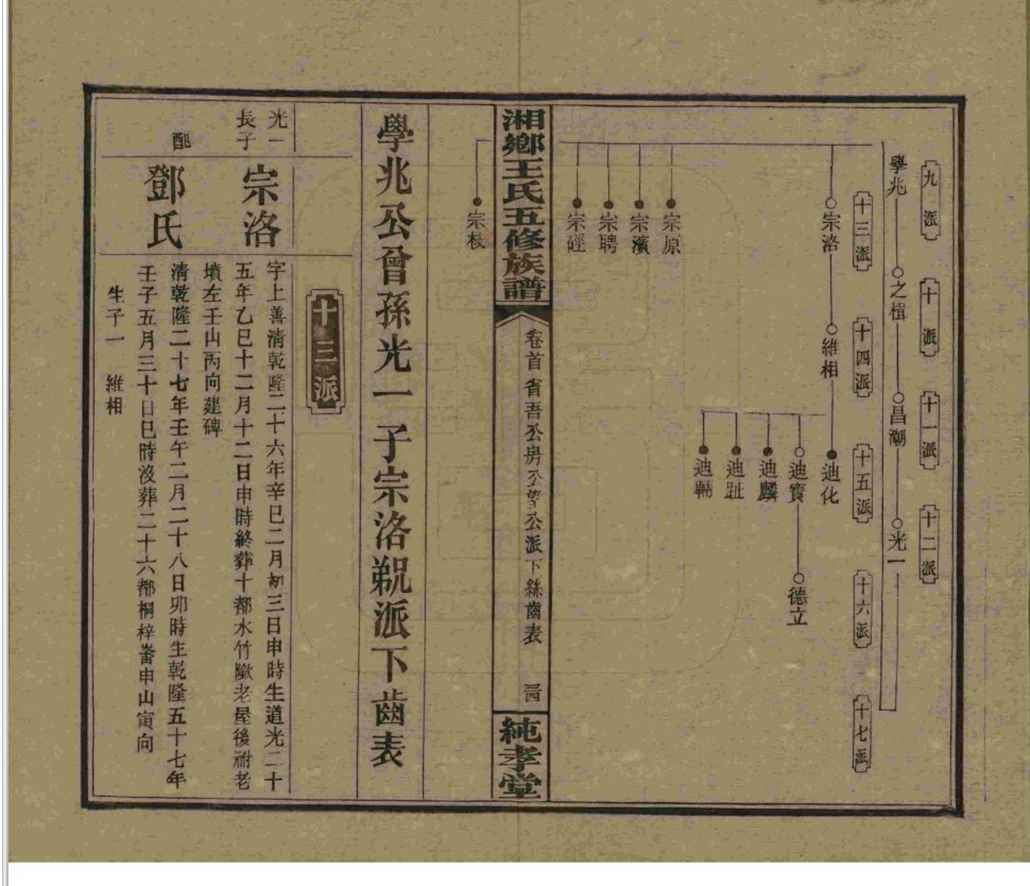 九派
十派
十一派
十二派
學兆
之楫
昌潮
光一
十三派
十四派
十五派
十六派
十七派
宗洛
維相
迪化
迪寶
德立
迪麟
迪趾
迪輔
宗原
宗濱
宗聘
宗硜
宗枝
湘鄉王氏五修族譜
卷首 省吾公房公 公派下絲齒表
純孝堂
學兆公曾孫光一子宗洛覡派下齒表
十三派
光一長子
宗洛
字上善清乾隆二十六年辛巳二月初三日申時生道光二十
五年乙巳十二月十二日申時終葬十都水竹 老屋後祔老
墳左壬山丙向建碑
配
鄧氏
清乾隆二十七年壬午二月二十八日卯時生乾隆五十七年
壬子五月三十日巳時沒葬二十六都桐梓崙申山寅向
生子一 維相